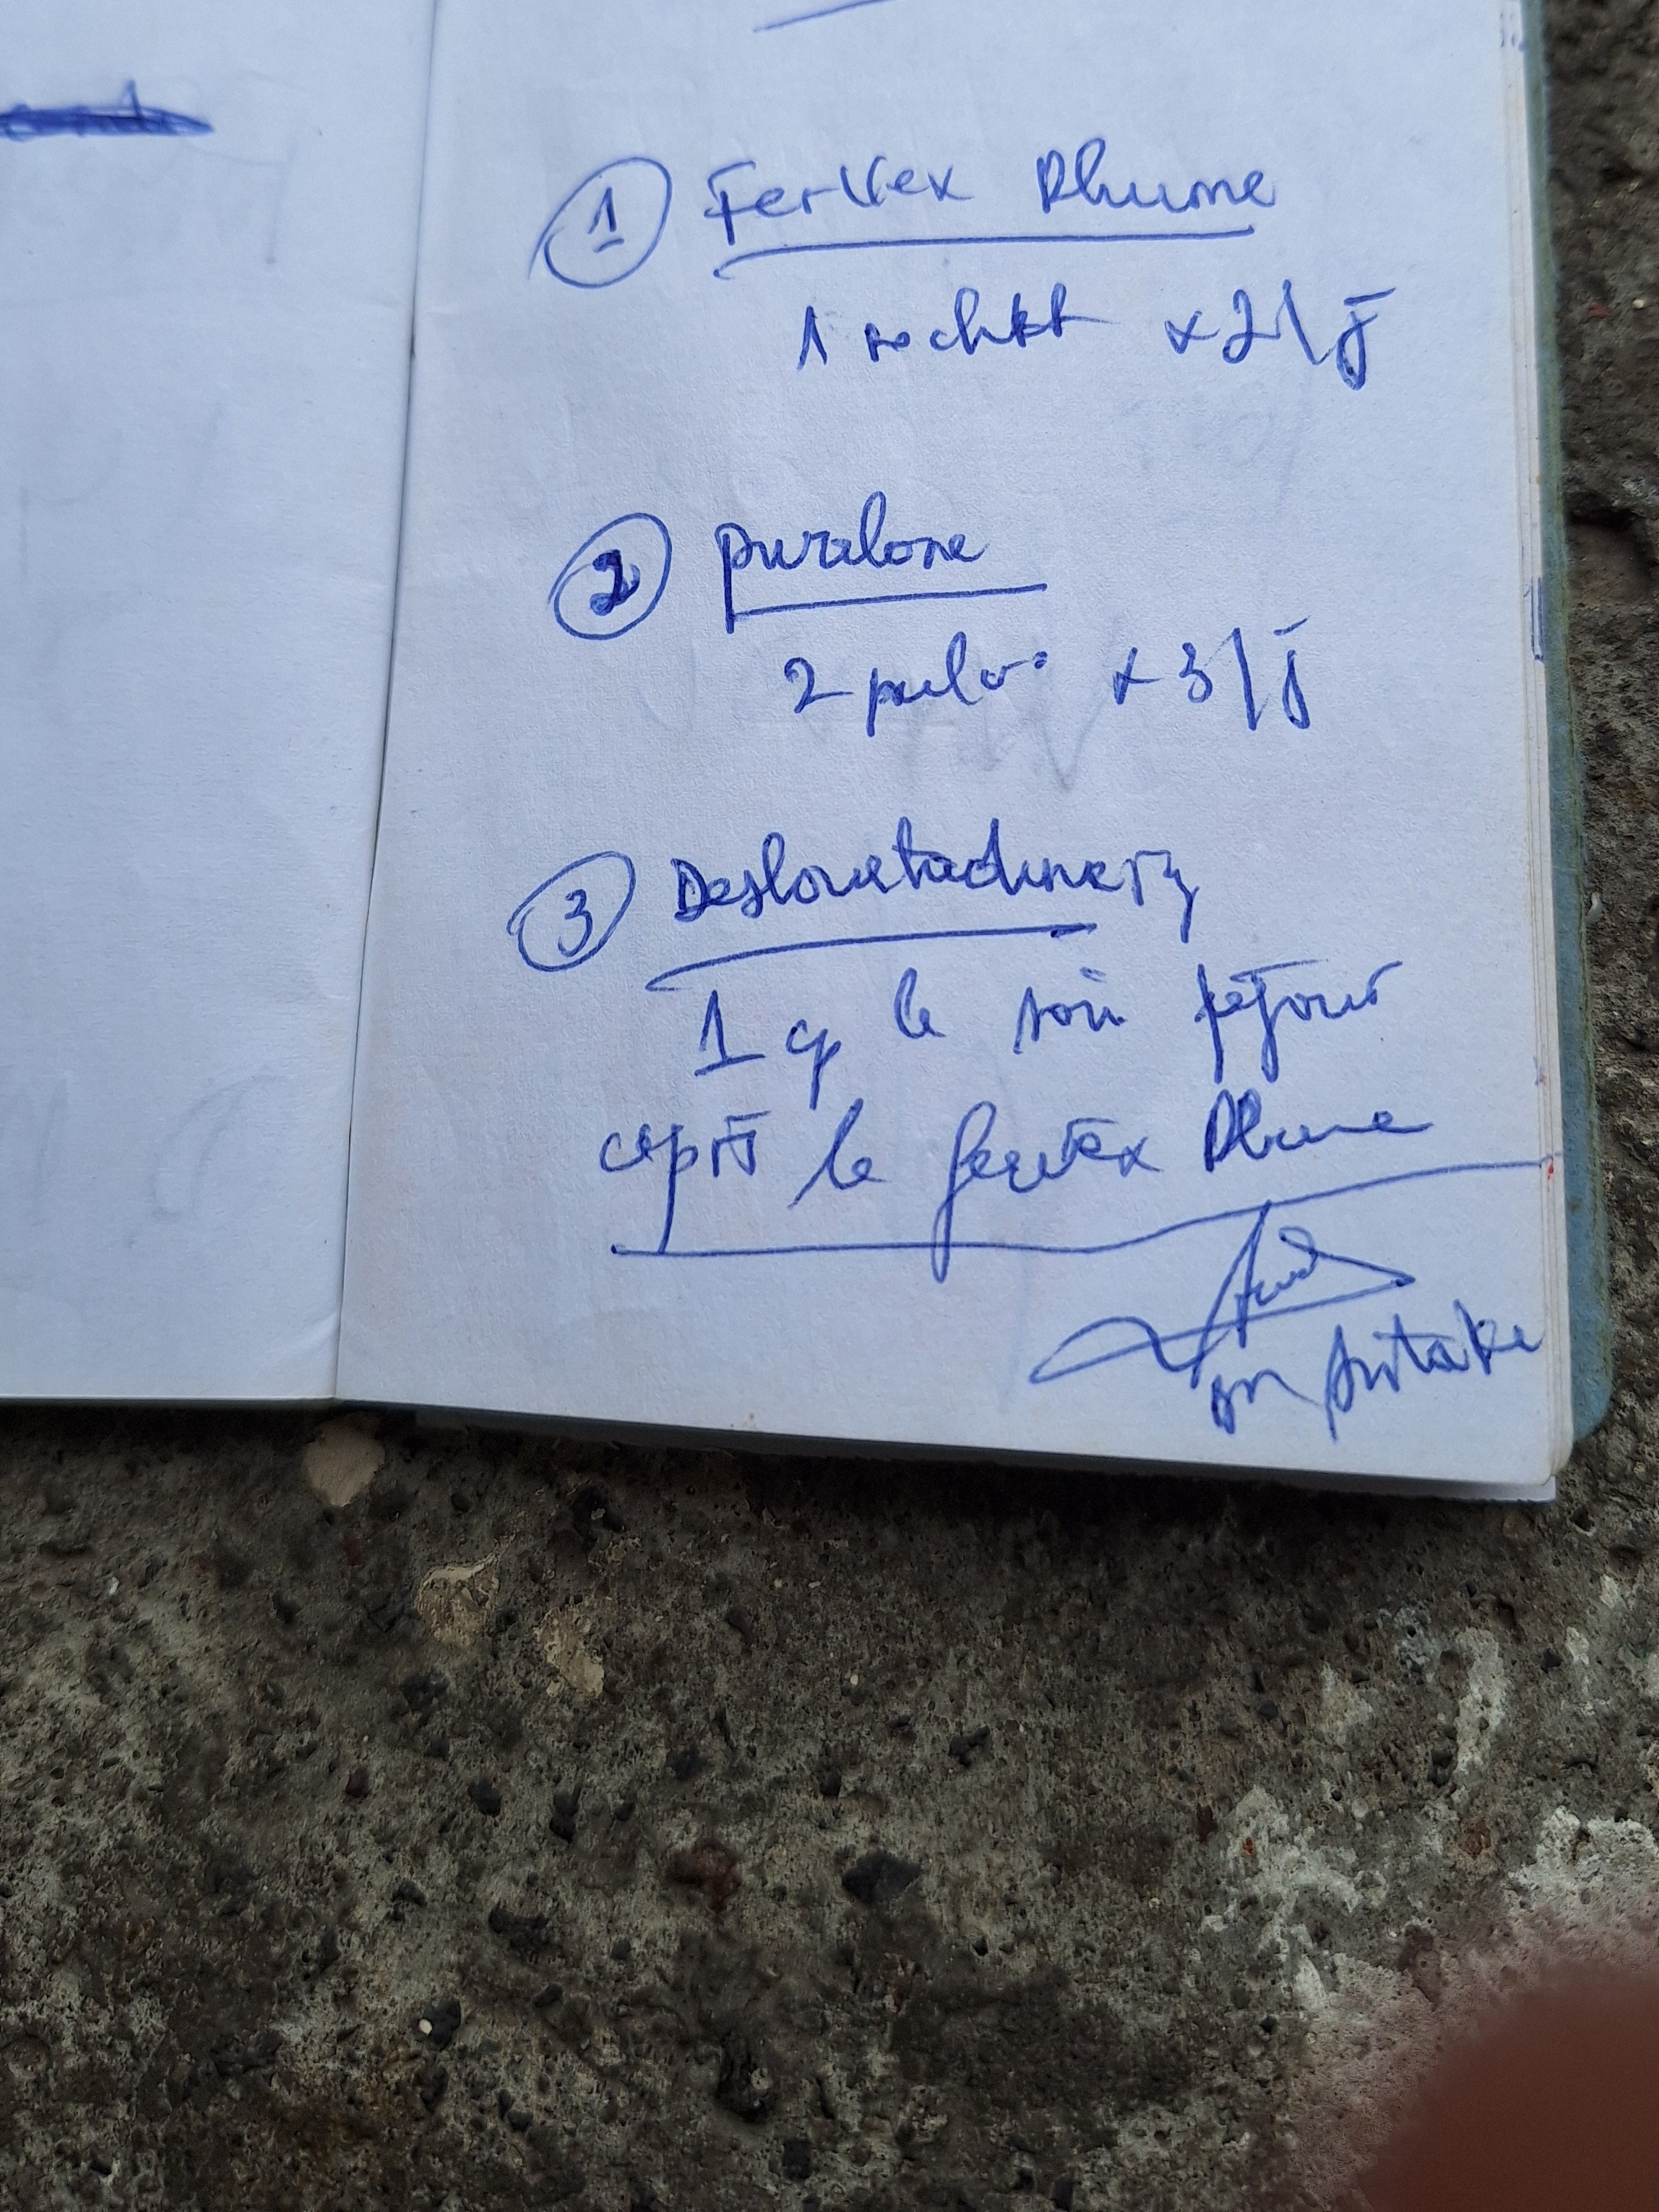 ① Fervex Rhume
1 sachet x2/j
② puralone
2 pulv. x3/j
③ Desloratadine
1 cp le soir
après le fervex Rhume
Dr